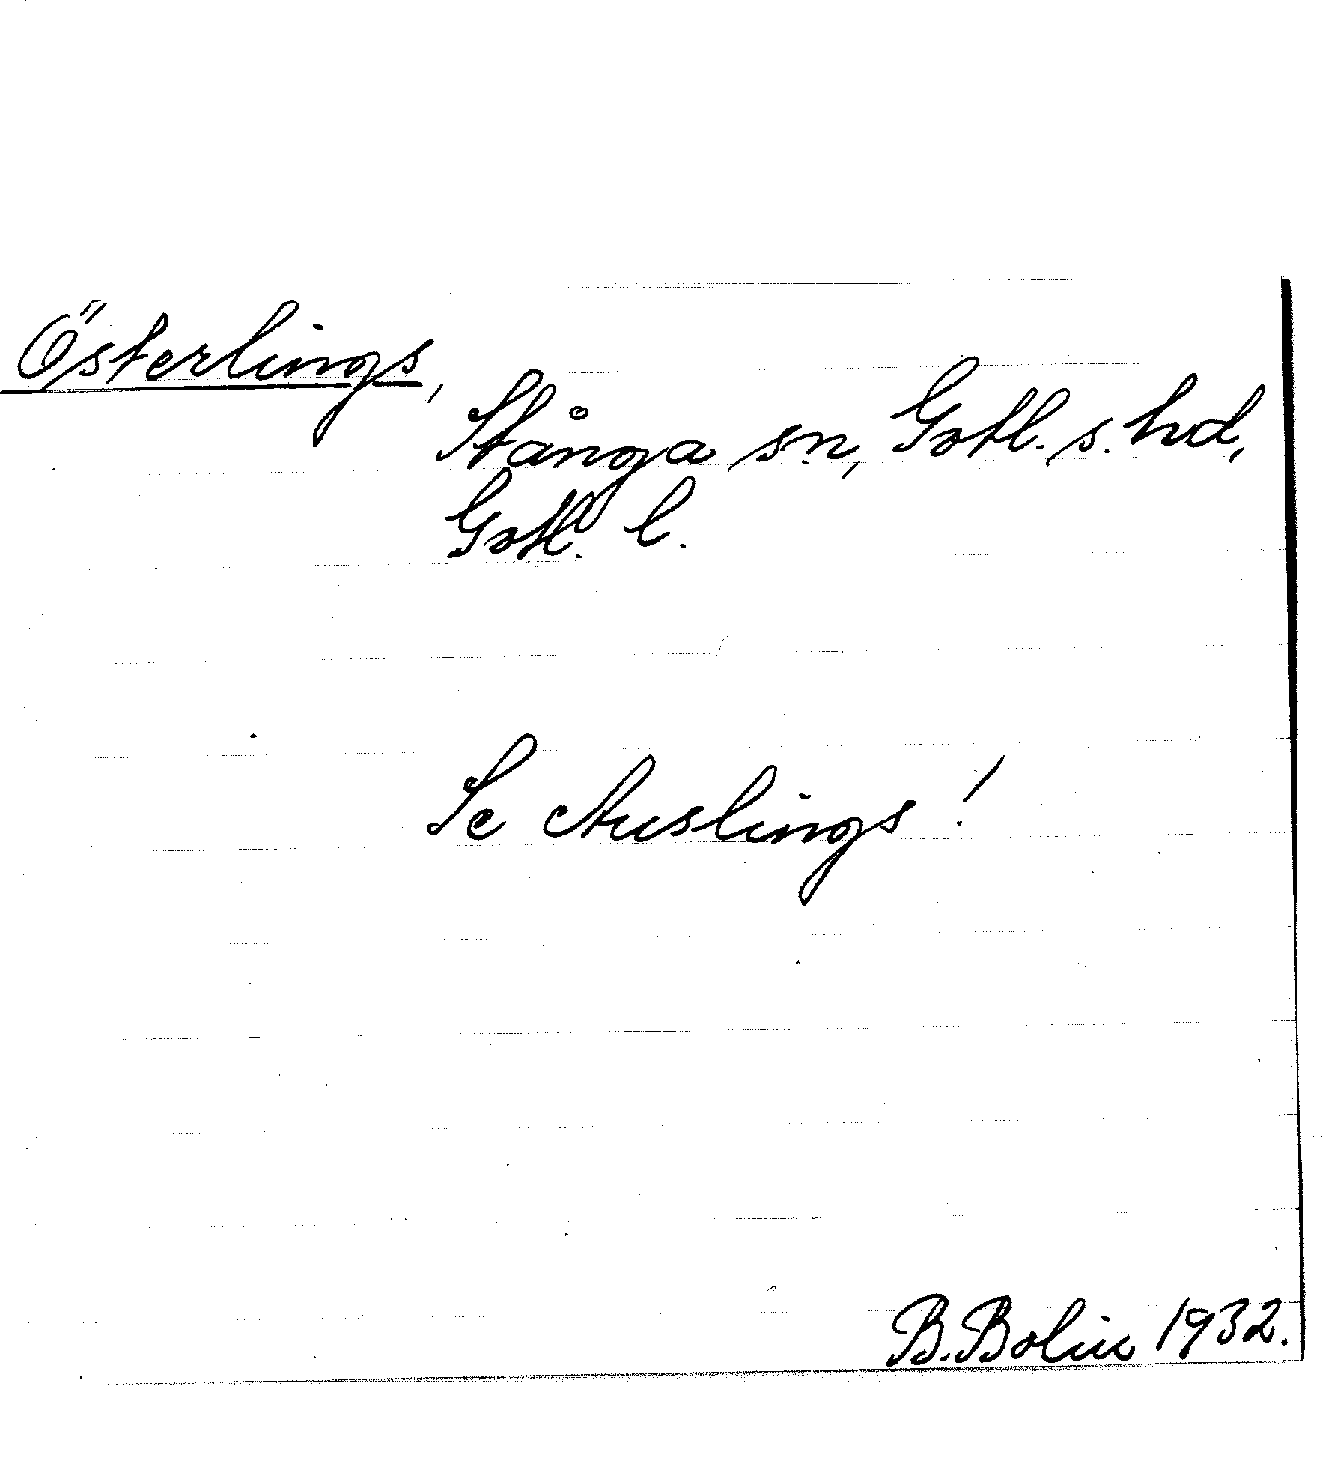 Österlings,
Stånga sn, Gotl. s. hd,
Gotl. l.
Se Auslings!
B. Bolin 1932.